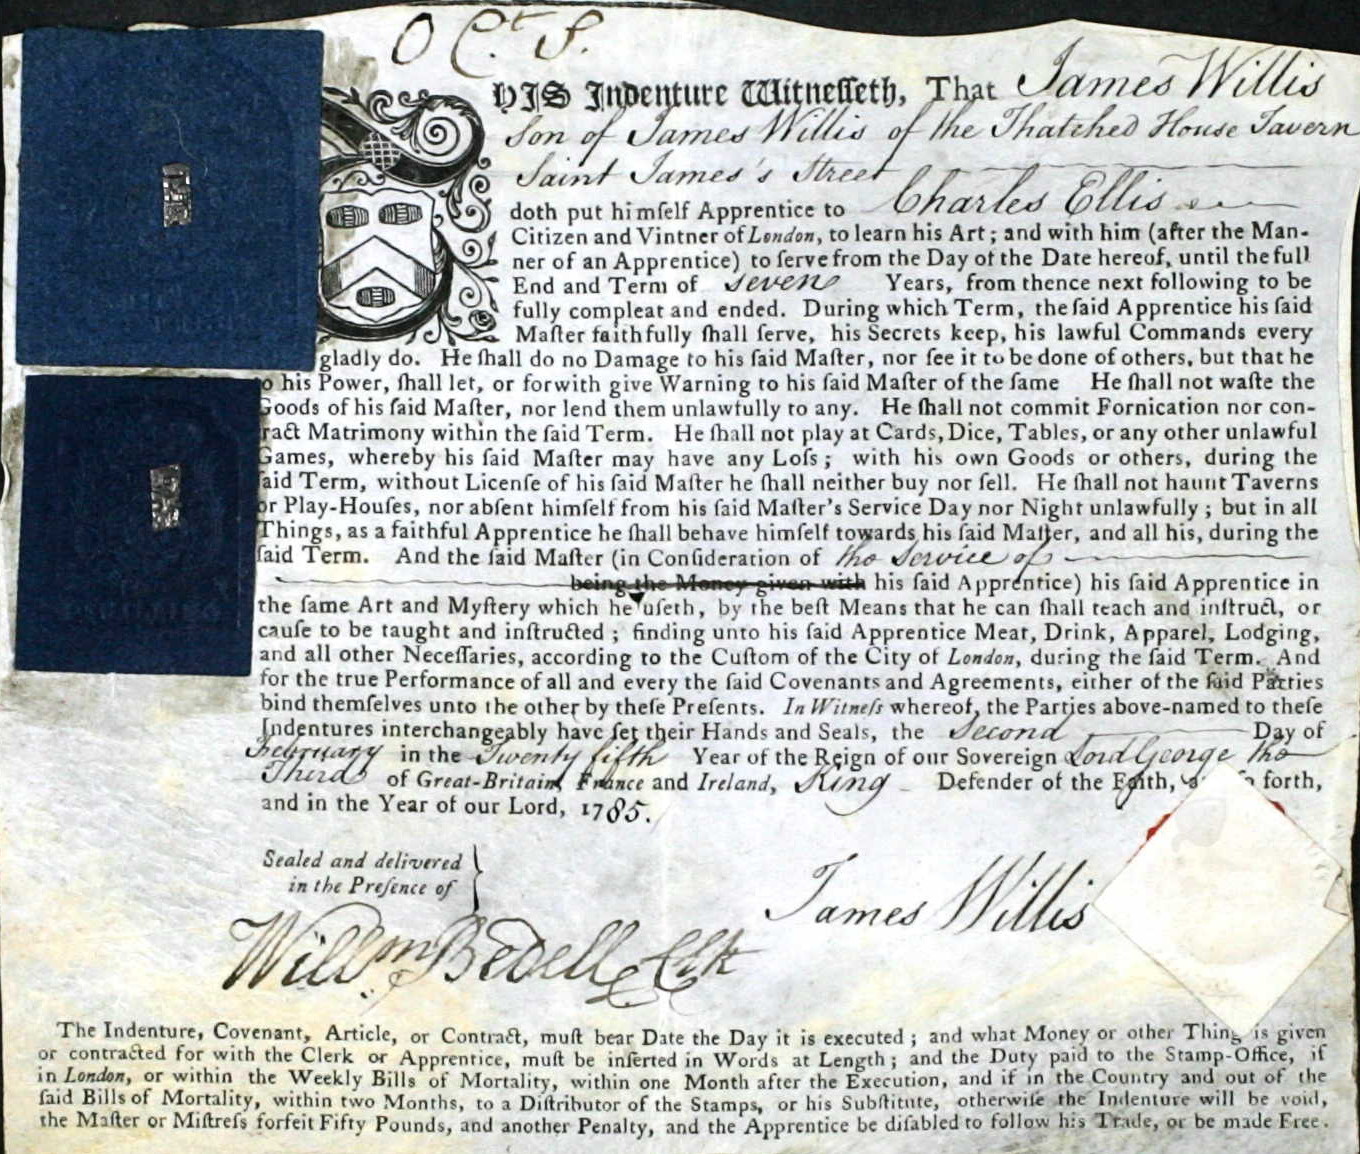 O C.t S.
THIS Indenture Witneſſeth, That James Willis
Son of James Willis of the Thatched House Tavern
Saint James's Street
doth put himſelf Apprentice to Charles Ellis
Citizen and Vintner of London, to learn his Art; and with him (after the Man-
ner of an Apprentice) to ſerve from the Day of the Date hereof, until the full
End and Term of Seven Years, from thence next following to be
fully compleat and ended. During which Term, the ſaid Apprentice his ſaid
Maſter faithfully ſhall ſerve, his Secrets keep, his lawful Commands every
gladly do. He ſhall do no Damage to his ſaid Maſter, nor ſee it to be done of others, but that he
to his Power, ſhall let, or forwith give Warning to his ſaid Maſter of the ſame He ſhall not waſte the
Goods of his ſaid Maſter, nor lend them unlawfully to any. He ſhall not commit Fornication nor con-
tract Matrimony within the ſaid Term. He ſhall not play at Cards, Dice, Tables, or any other unlawful
Games, whereby his ſaid Maſter may have any Loſs; with his own Goods or others, during the
ſaid Term, without Licenſe of his ſaid Maſter he ſhall neither buy nor ſell. He ſhall not haunt Taverns
or Play-Houſes, nor abſent himſelf from his ſaid Maſter's Service Day nor Night unlawfully; but in all
Things, as a faithful Apprentice he ſhall behave himſelf towards his ſaid Maſter, and all his, during the
ſaid Term. And the ſaid Maſter (in Conſideration of the Service of
being the Money given with his ſaid Apprentice) his ſaid Apprentice in
the ſame Art and Myſtery which he uſeth, by the beſt Means that he can ſhall teach and inſtruct, or
cauſe to be taught and inſtructed; finding unto his ſaid Apprentice Meat, Drink, Apparel, Lodging,
and all other Neceſſaries, according to the Cuſtom of the City of London, during the ſaid Term. And
for the true Performance of all and every the ſaid Covenants and Agreements, either of the ſaid Parties
bind themſelves unto the other by theſe Preſents. In Witneſs whereof, the Parties above-named to theſe
Indentures interchangeably have ſet their Hands and Seals, the Second Day of
February in the Twenty fifth Year of the Reign of our Sovereign Lord George the
Third of Great-Britain, France and Ireland, King Defender of the Faith, forth,
and in the Year of our Lord, 1785.
Sealed and delivered
in the Preſence of
James Willis
Will.m Bedell Clk
The Indenture, Covenant, Article, or Contract, muſt bear Date the Day it is executed; and what Money or other Thing is given
or contracted for with the Clerk or Apprentice, muſt be inſerted in Words at Length; and the Duty paid to the Stamp-Office, if
in London, or within the Weekly Bills of Mortality, within one Month after the Execution, and if in the Country and out of the
ſaid Bills of Mortality, within two Months, to a Diſtributor of the Stamps, or his Subſtitute, otherwiſe the Indenture will be void,
the Maſter or Miſtreſs forfeit Fifty Pounds, and another Penalty, and the Apprentice be diſabled to follow his Trade, or be made Free.